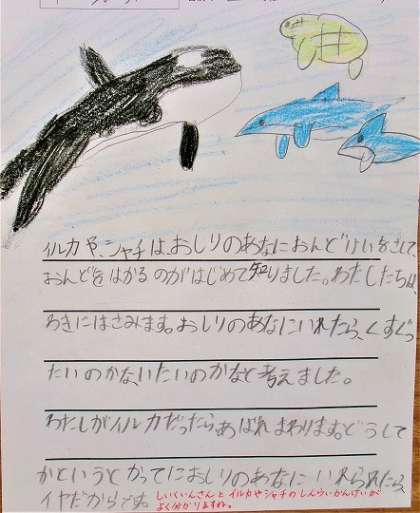 イルカや、シャチは、おしりのあなにおんどけいをさして、
おんどをはかるのがはじめて知りました。わたしたちは、
わきにはさみます。おしりのあなにいれたら、くすぐっ
たいのかな、いたいのかなと考えました。
わたしがイルカだったら、あばれまわります。どうして
かというとかってにおしりのあなにいれられたら、
イヤだからです。
しいくいんさんとイルカやシャチのしんらいかんけいが
よく分かりますね。